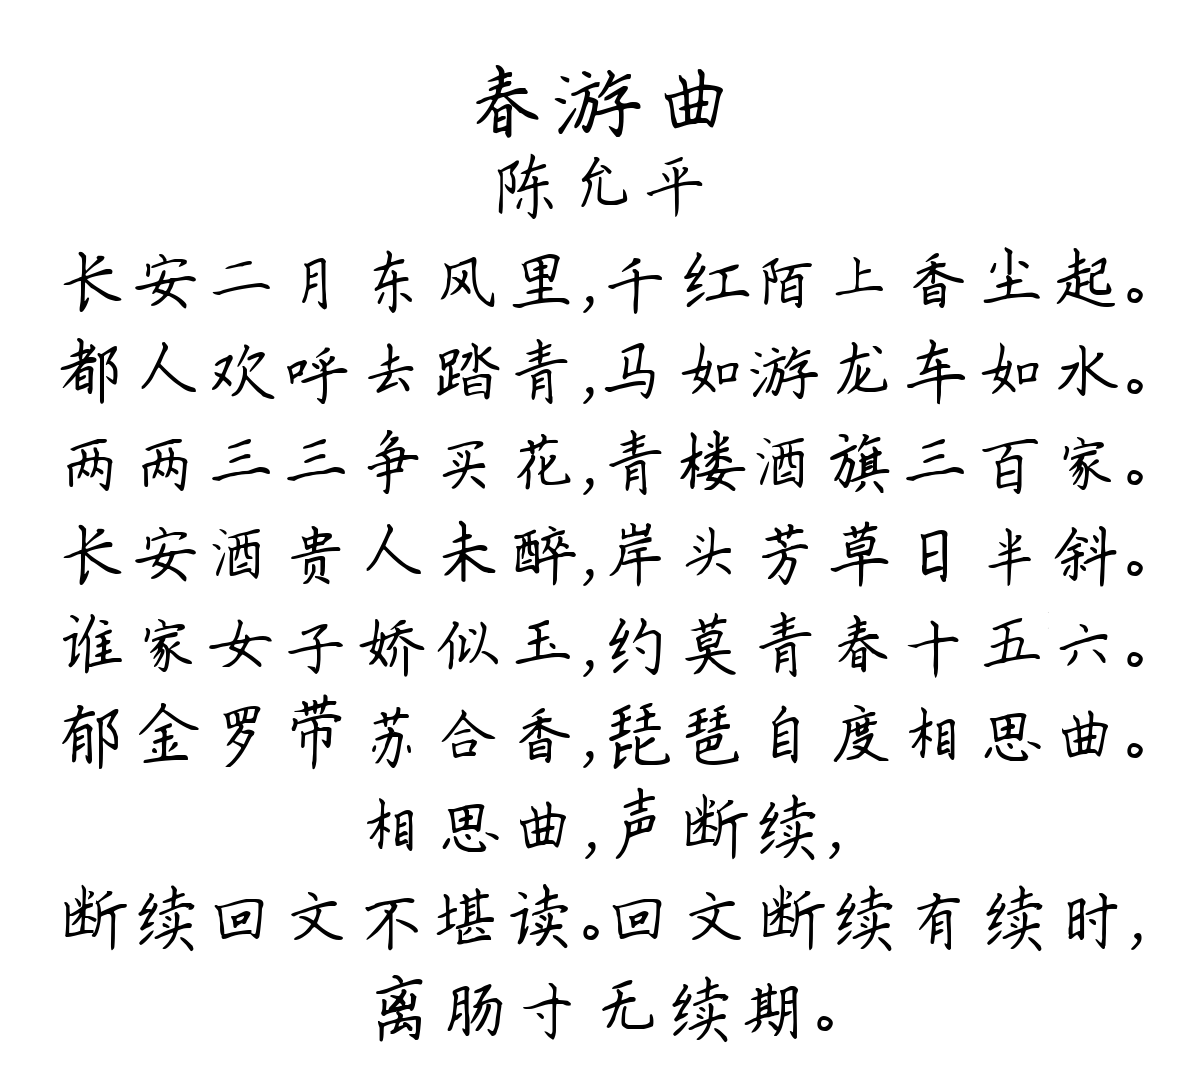 春游曲
陈允平
长安二月东风里,千红陌上香尘起。
都人欢呼去踏青,马如游龙车如水。
两两三三争买花,青楼酒旗三百家。
长安酒贵人未醉,岸头芳草日半斜。
谁家女子娇似玉,约莫青春十五六。
郁金罗带苏合香,琵琶自度相思曲。
相思曲,声断续,
断续回文不堪读。回文断续有续时,
离肠寸无续期。